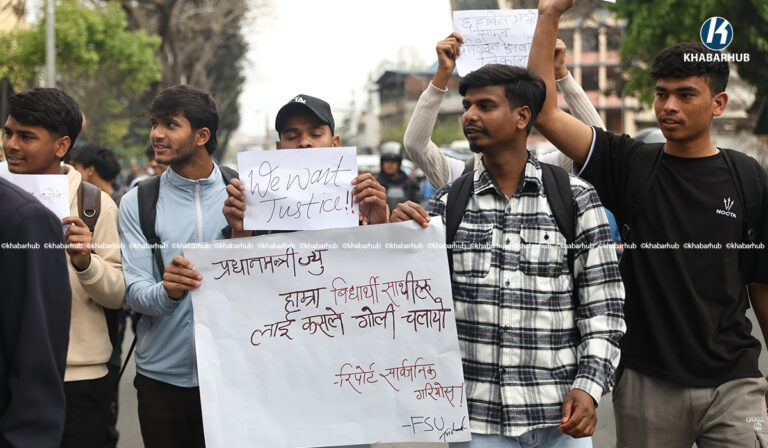 KHABARHUB
छानबिन
We want
Justice!!
प्रधानमन्त्री ज्यु
हाम्रा विद्यार्थी साथीहरू
लाई कसले गोली चलायो
-रिपोर्ट सार्वजनिक
गरियोस!
-FSU
NOCTA
©khabarhub ©khabarhub ©khabarhub ©khabarhub ©khabarhub ©khabarhub ©khabarhub ©khabarhub ©khabarhub ©khabarhub ©khabarhub